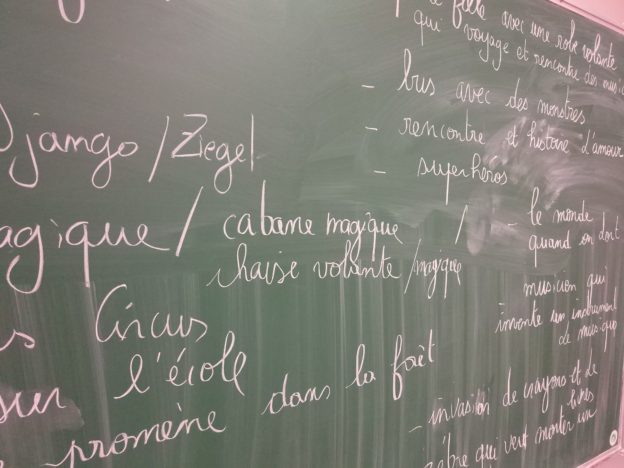 fille avec une robe volante
qui voyage et rencontre des
- bus avec des monstres
- rencontre et histoire d'amour
- superhéros
Django / Ziegel
agique / cabane magique /
chaise volante / magique
- le monde
quand on dort
musicien qui
invente un instrument
de musique
Circus
l'école
sur
promène dans la forêt
- invasion de crayons et de
livres
qui veut monter un